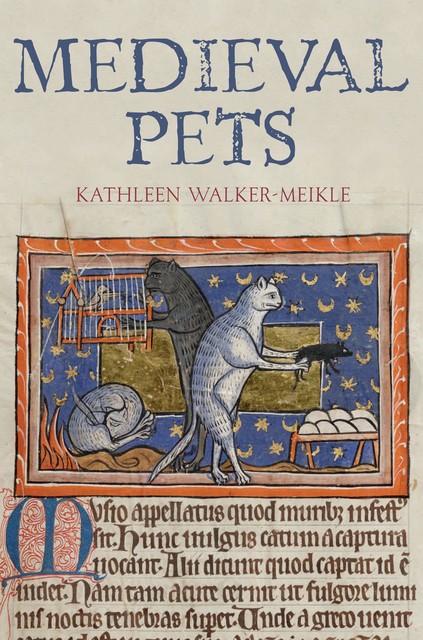 MEDIEVAL
PETS
KATHLEEN WALKER-MEIKLE
Musio appellatus quod murib; infestꝰ
sit. Hunc uulgus catum a captura
uocant. Alii dicunt quod captat id ē
uidet. Nam tam acute cernit ut fulgore lumi
nis noctis tenebras super&. Unde a greco uenit